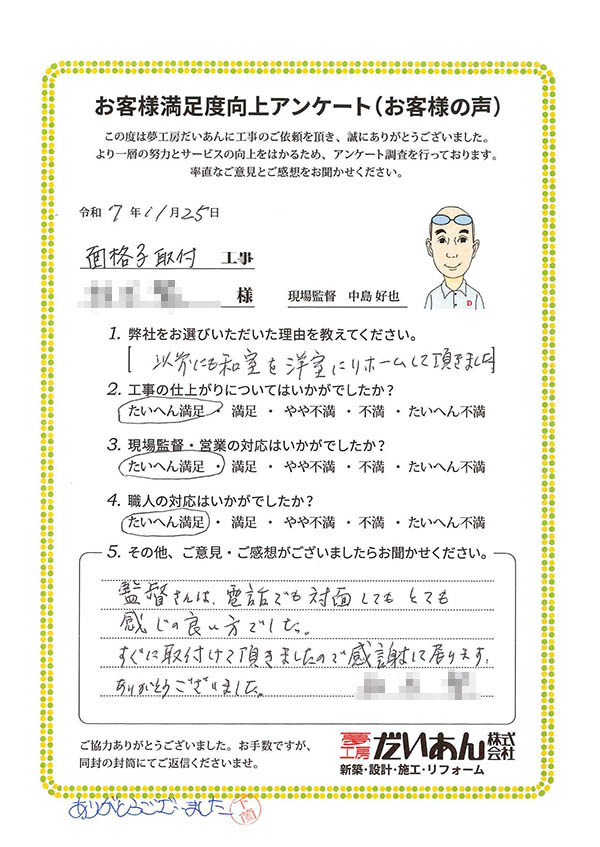 お客様満足度向上アンケート（お客様の声）
この度は夢工房だいあんに工事のご依頼を頂き、誠にありがとうございました。
より一層の努力とサービスの向上をはかるため、アンケート調査を行っております。
率直なご意見とご感想をお聞かせください。
令和 7 年 11 月 25 日
面格子取付 工事
様 現場監督 中島 好也
D
1. 弊社をお選びいただいた理由を教えてください。
[ 以前にも和室を洋室にリホームして頂きました]
2. 工事の仕上がりについてはいかがでしたか？
たいへん満足 ・ 満足 ・ やや不満 ・ 不満 ・ たいへん不満
3. 現場監督・営業の対応はいかがでしたか？
たいへん満足 ・ 満足 ・ やや不満 ・ 不満 ・ たいへん不満
4. 職人の対応はいかがでしたか？
たいへん満足 ・ 満足 ・ やや不満 ・ 不満 ・ たいへん不満
5. その他、ご意見・ご感想がございましたらお聞かせください。
監督さんは、電話でも対面してもとても
感じの良い方でした。
すぐに取付けて頂きましたので感謝して居ります。
ありがとうございました。
ご協力ありがとうございました。お手数ですが、
同封の封筒にてご返信くださいませ。
夢工房 だいあん 株式会社
新築・設計・施工・リフォーム
ありがとうございました